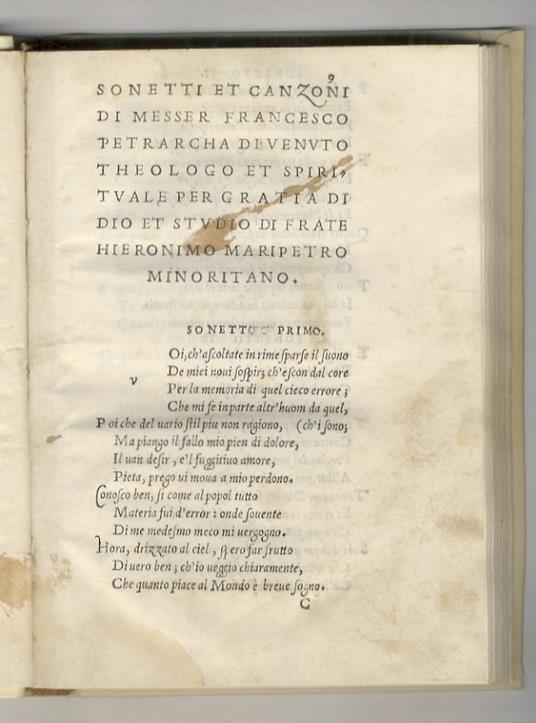 SONETTI ET CANZONI
DI MESSER FRANCESCO
PETRARCHA DIVENVTO
THEOLOGO ET SPIRI,
TVALE PER GRATIA DI
DIO ET STVDIO DI FRATE
HIERONIMO MARIPETRO
MINORITANO.
SONETTO PRIMO.
V
Oi, ch'aſcoltate in rime ſparse il ſuono
De miei noui ſoſpir; ch'eſcon dal core
Per la memoria di quel cieco errore;
Che mi fe in parte altr'huom da quel,
Poi che del uario ſtil piu non ragiono, (ch'i ſono;
Ma piango il fallo mio pien di dolore,
Il uan deſir, e'l fuggitiuo amore,
Pieta, prego ui moua a mio perdono.
Conoſco ben, ſi come al popol tutto
Materia fui d'error: onde ſouente
Di me medeſmo meco mi uergogno.
Hora, drizzato al ciel, ſpero far frutto
Di uero ben; ch'io ueggio chiaramente,
Che quanto piace al Mondo è breue ſogno.
C